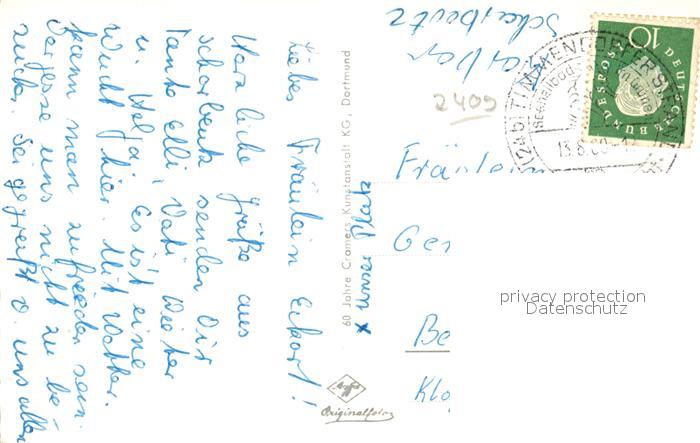 Liebes Fräulein Eckart!
Herzliche Grüße aus
Scharbeutz senden Dir
Tante Elli, Vati, Dieter
u. Helga. Es ist eine
Wucht hier. Mit Wetter
kann man zufrieden sein.
Vergesse uns nicht zu be-
suchen. Sei gegrüßt v. uns allen
60 Jahre Cramers Kunstanstalt KG, Dortmund
x unser Platz
Agfa
Originalfoto
Scharbeutz
2409
(24b) TIMMENDORFER STRAND
Seeheilbad
13.8.60
10
DEUTSCHE BUNDESPOST
Fräulein
Ger
Be
Klo
privacy protection
Datenschutz